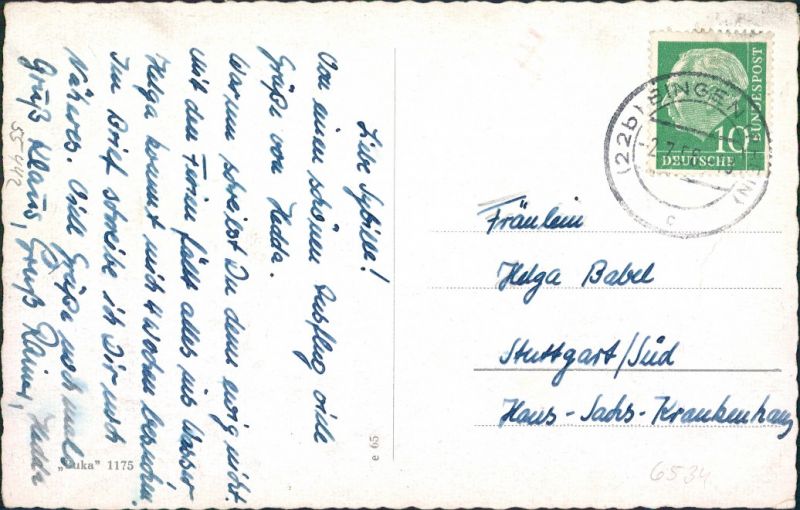 Liebe Sybille!
Von einem schönen Ausflug viele
Grüße von Hedda.
Warum schreibst Du denn ewig nicht.
Mit den Ferien fällt alles ins Wasser
Helga kommt mich 4 Wochen besuchen.
Im Brief schreibe ich Dir noch
Näheres. Viele Grüße nochmals
Gruß Klaus, Gruß Rainer, Hedda
55 442
„Luka" 1175
e 65
DEUTSCHE
BUNDESPOST
10
(22b) BINGEN
-2.7.
c
Fräulein
Helga Babel
Stuttgart/Süd
Hans-Sachs-Krankenhaus
6534